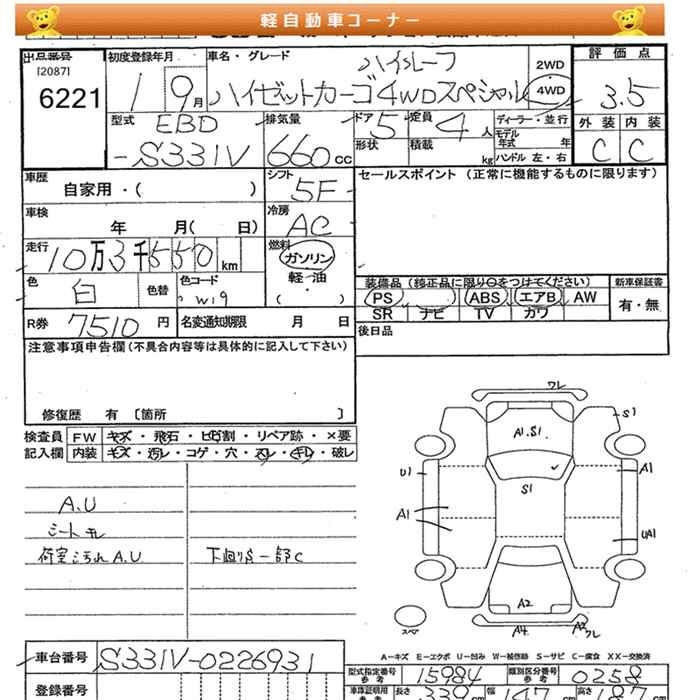 軽自動車コーナー
出品番号 初度登録年月 車名・グレード ハイルーフ 2WD 評価点
[2087]
6221 1 9月 ハイゼットカーゴ4WDスペシャル 4WD 3.5
型式 EBD 排気量 ドア 5 定員 4 人 ディーラー・並行 外装 内装
モデル年式 年
-S331V 660cc 形状 積載 kg ハンドル 左・右 C C
車歴 シフト 5F セールスポイント (正常に機能するものに限ります)
自家用・( )
車検 冷房 AC
年 月( 日)
走行 燃料
10万3千550km ガソリン
色 白 色替 色コード W19 軽・油
( ・ )
装備品 (純正品に限り○をつけてください) 新車保証書
PS ABS エアB AW 有・無
SR ナビ TV カワ
R券 7510円 名変通知期限 月 日
後日品
注意事項申告欄(不具合内容等は具体的に記入して下さい)
修復歴 有 〔箇所 〕
検査員 FW キズ・飛石・ヒビ割・リペア跡・×要
記入欄 内装 キズ・汚レ・コゲ・穴・スレ・キレ・破レ
A.U
シートキレ
荷室汚れA.U 下廻りS一部C
ワレ
S1
A1.S1
U1 S1 A1
A1 UA1
A2
スペア A4 A2 ワレ
A-キズ E-エクボ U-凹み W-補修跡 S-サビ C-腐食 XX-交換済
車台番号 S331V-0226931
型式指定番号 参考 15984 類別区分番号 参考 0258
登録番号 車庫証明用 参考 長さ 339cm 幅 147cm 高さ 187cm